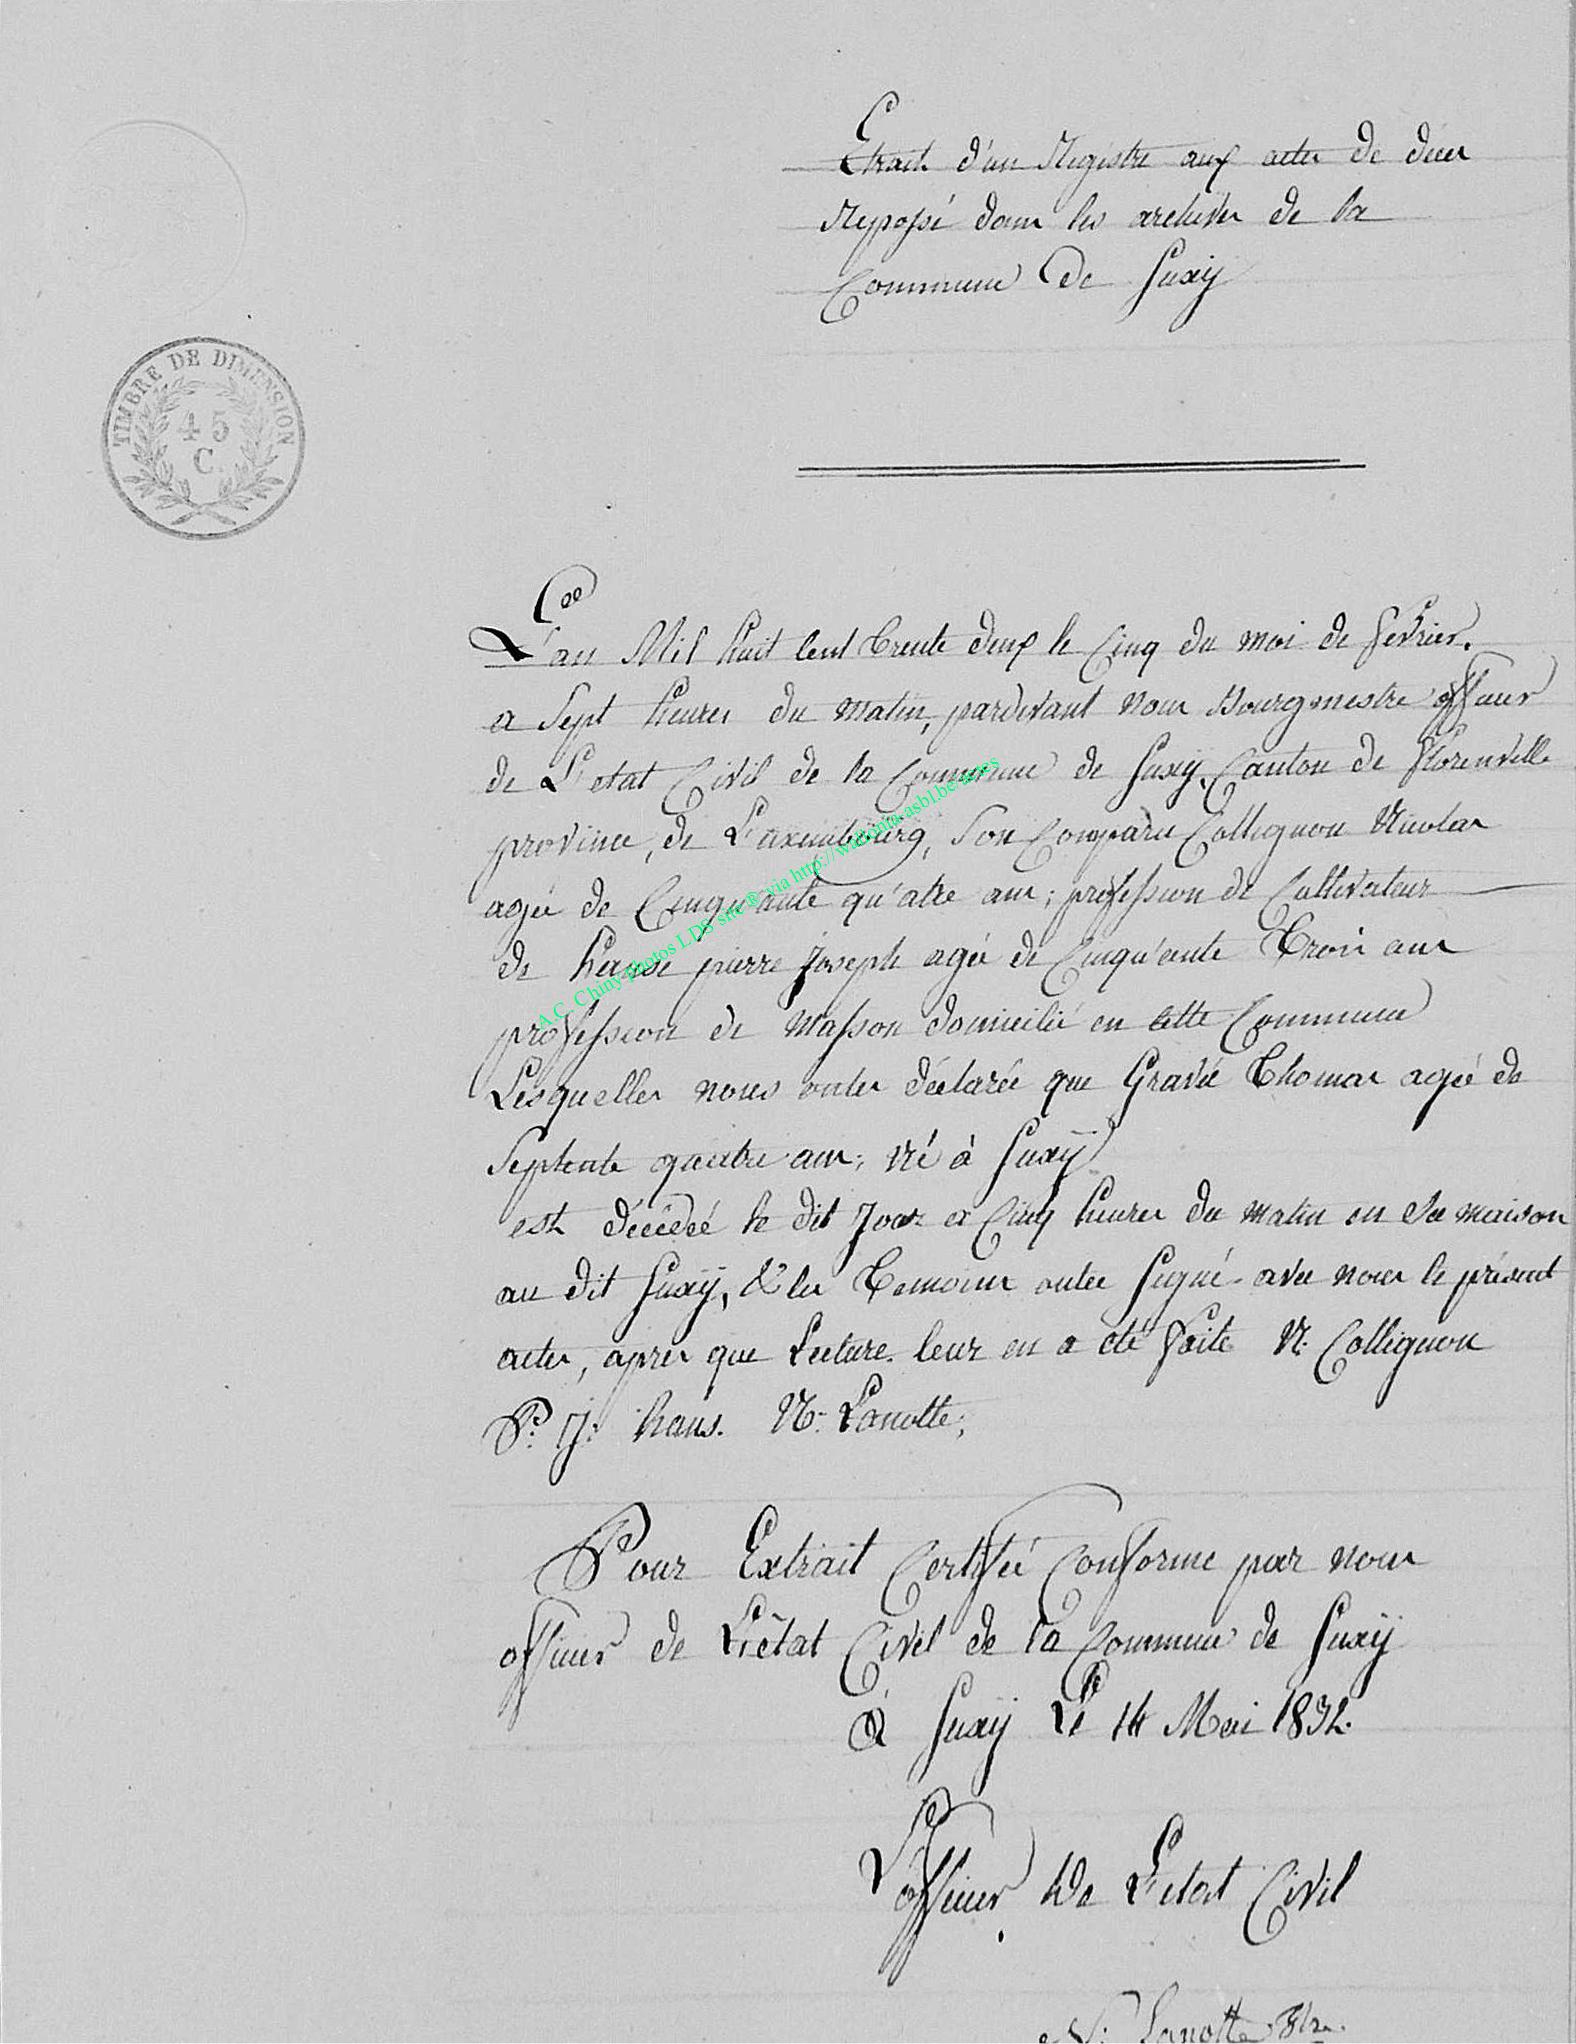 Etrait d'un Régistre aux actes de décès
Reposé dans les archives de la
Commune de Suxÿ
TIMBRE DE DIMENSION
45
C.
L'an Mil huit Cent Trente deux le Cinq du moi de fevrier.
a Sept heures du matin, pardevant nous Bourgmestre officier
de L'etat Civil de la Commune de Suxÿ, Canton de florenville
province, de Luxembourg, Son Comparu Collignon Nicolas
agée de Cinqu'ante qu'atre ans; profession de Cultivateur
de pierre Joseph agée de Cinqu'ente Trois ans
profession de Masson domicilié en cette Commune
Lesquelles nous ontes déclarée que Gravié Thomas agié de
Septente quatre ans; Né à Suxÿ
est décédé le dit Jour a Cinq heures du matin en Sa maison
au dit Suxÿ, & les Temoins ontes Signé avec nous le présent
actes, après que Lecture leur en a eté faite N. Collignon
P. J. hans. N. Lanotte;
Pour Extrait Certifié Conforme par nous
officier de L'êtat Civil de la Commune de Suxÿ
à Suxÿ Le 14 Mai 1832.
L'officier De L'etat Civil
N: Lanotte
A.C. Chiny photos LDS site ® via http://wallonia-asbl.be/actes